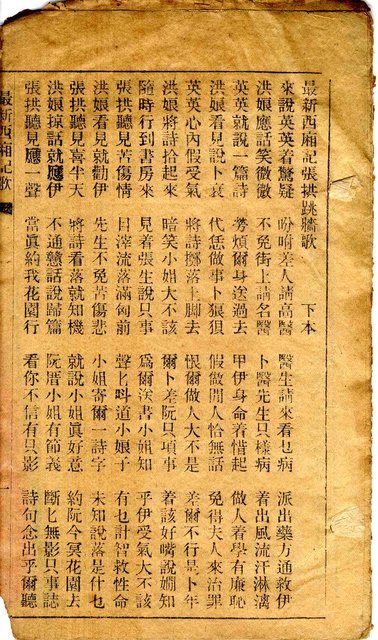 最新西廂記張拱跳牆歌 下本
來說英英着驚疑 吩咐差人請高醫 醫生請來看乜病 派出藥方通救伊
洪娘應話笑微微 不免街上請名醫 卜醫先生只樣病 着出風流汗淋漓
英英就說一篇詩 勞煩爾身送過去 甲伊身命着惜起 做人着學有廉恥
洪娘看見說卜衰 代恁做事卜狼狽 假做閒人恰無話 免得夫人來治罪
英英心內假受氣 將詩擲落土脚去 恨爾做人大不是 差爾不行是卜年
洪娘將詩拾起來 暗笑小姐大不該 爾卜差阮只項事 着該好嘴說嫺知
隨時行到書房來 見着張生說只事 爲爾送書小姐知 乎伊受氣大不該
張拱聽見苦傷情 目滓流落滿匈前 聲匕呌道小娘子 有乜計智救性命
洪娘看見就勸伊 先生不免苦傷悲 小姐寄爾一詩字 未知說落是什乜
張拱聽見喜半天 將詩看落就知機 就說小姐眞好意 約阮今冥花園去
洪娘掠話就應伊 不通戇話說歸篇 阮厝小姐有節義 斷匕無影只事誌
張拱聽見應一聲 當眞約我花園行 看你不信有只影 詩句念出乎爾聽
最新西廂記歌